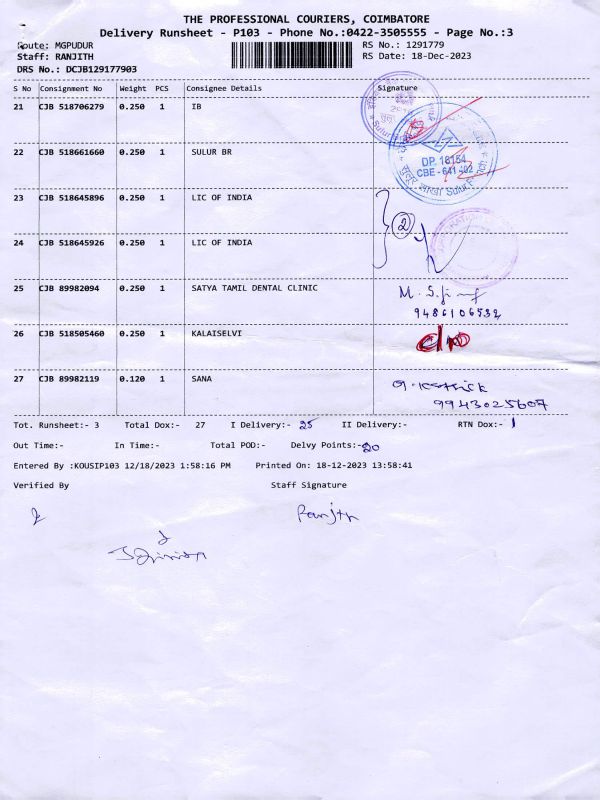 THE PROFESSIONAL COURIERS, COIMBATORE
Delivery Runsheet - P103 - Phone No.:0422-3505555 - Page No.:3
Route: MGPUDUR RS No.: 1291779
Staff: RANJITH RS Date: 18-Dec-2023
DRS No.: DCJB129177903
S No Consignment No Weight PCS Consignee Details Signature
21 CJB 518706279 0.250 1 IB
22 CJB 518661660 0.250 1 SULUR BR
DP. 16154
CBE - 641 402
सुलूर शाखा Sulur
23 CJB 518645896 0.250 1 LIC OF INDIA
2
24 CJB 518645926 0.250 1 LIC OF INDIA
25 CJB 89982094 0.250 1 SATYA TAMIL DENTAL CLINIC
9486106532
26 CJB 518505460 0.250 1 KALAISELVI
27 CJB 89982119 0.120 1 SANA
9943025607
Tot. Runsheet:- 3 Total Dox:- 27 I Delivery:- 25 II Delivery:- RTN Dox:- 1
Out Time:- In Time:- Total POD:- Delvy Points:- 20
Entered By :KOUSIP103 12/18/2023 1:58:16 PM Printed On: 18-12-2023 13:58:41
Verified By Staff Signature
Ranjth